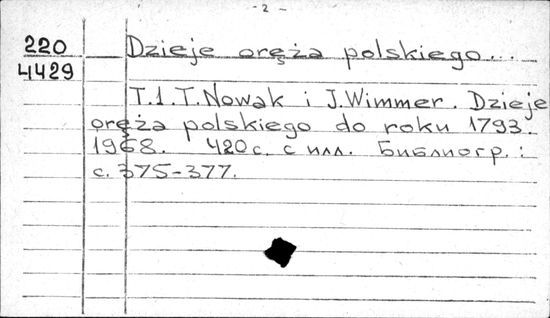 - 2 -
220
4429
Dzieje oręża polskiego...
T.1. T. Nowak i J. Wimmer. Dzieje
oręża polskiego do roku 1793.
1968. 420 с. с илл. Библиогр.:
с. 375-377.